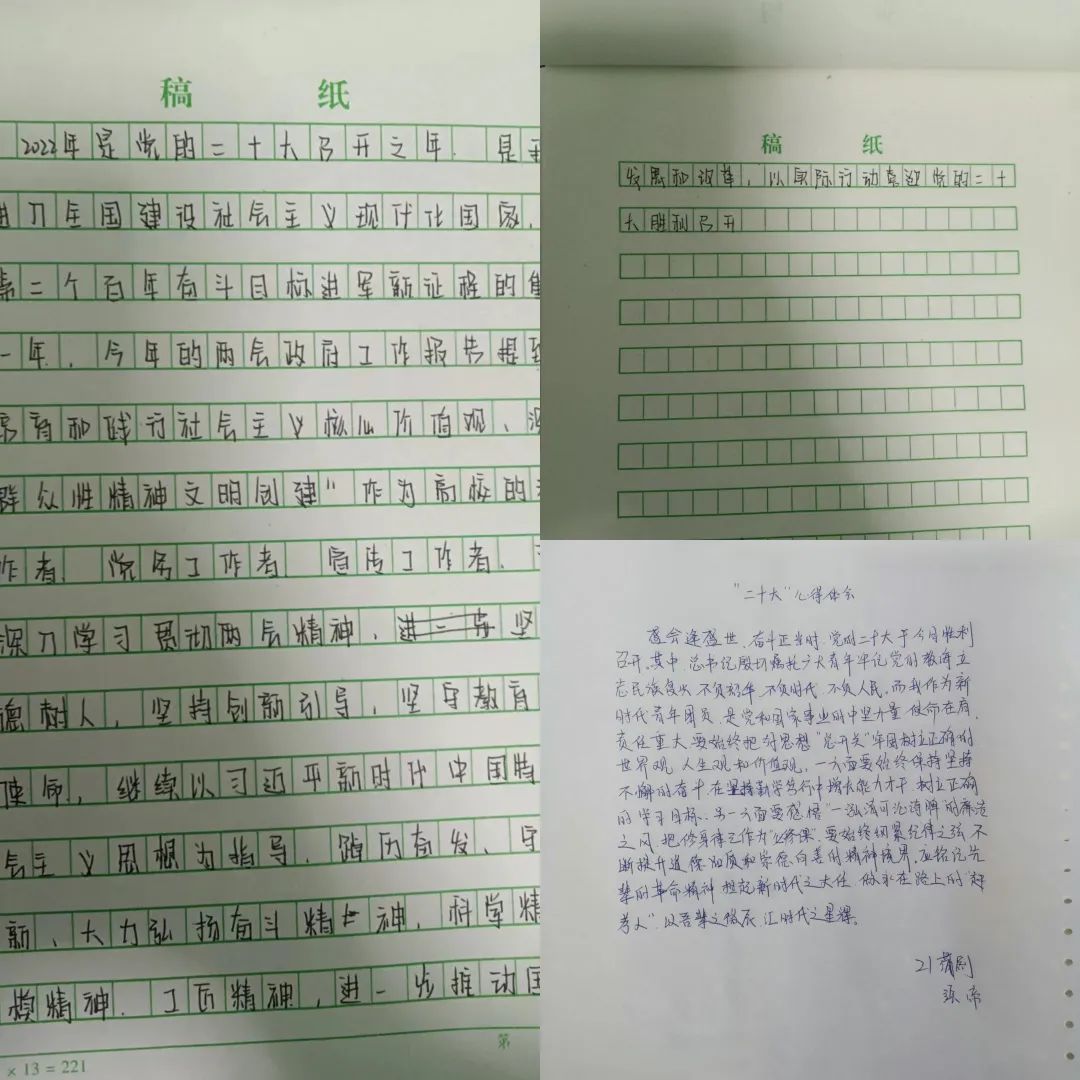 稿 纸
2022年是党的二十大召开之年,是
进入全国建设社会主义现代化国家,
第二个百年奋斗目标进军新征程的
一年,今年的两会政府工作报告提到
育和践行社会主义核心价值观、
群众性精神文明创建"作为高校的
作者、党务工作者、宣传工作者、
深入学习贯彻两会精神,进一步坚
德树人,坚持创新引导,坚守教育
使命,继续以习近平新时代中国特
会主义思想为指导,踔厉奋发、守
新、大力弘扬奋斗精神,科学精
模精神、工匠精神,进一步推动国
第
× 13 = 221
稿 纸
发展和改革,以实际行动喜迎党的二十
大胜利召开
"二十大"心得体会
盛会逢盛世、奋斗正当时,党的二十大于今日胜利
召开。其中,总书记殷切嘱托广大青年牢记党的教诲,立
志民族复兴,不负韶华,不负时代,不负人民。而我作为新
时代青年团员,是党和国家事业的中坚力量,使命在肩,
责任重大,要始终把好思想"总开关",牢固树立正确的
世界观,人生观和价值观,一方面要始终保持坚持
不懈的奋斗,在坚持勤学笃行中增长能力才干,树立正确
的学习目标、另一方面要感悟"一泓清可沁诗脾"的廉洁
之风,把修身律己作为"必修课",要始终绷紧纪律之弦,不
断提升道德品质和崇德向善的精神境界,应铭记先
辈的革命精神,担起新时代之大任,做永在路上的"赶
考人",以吾辈之微辰,汇时代之星辉。
21蒲剧